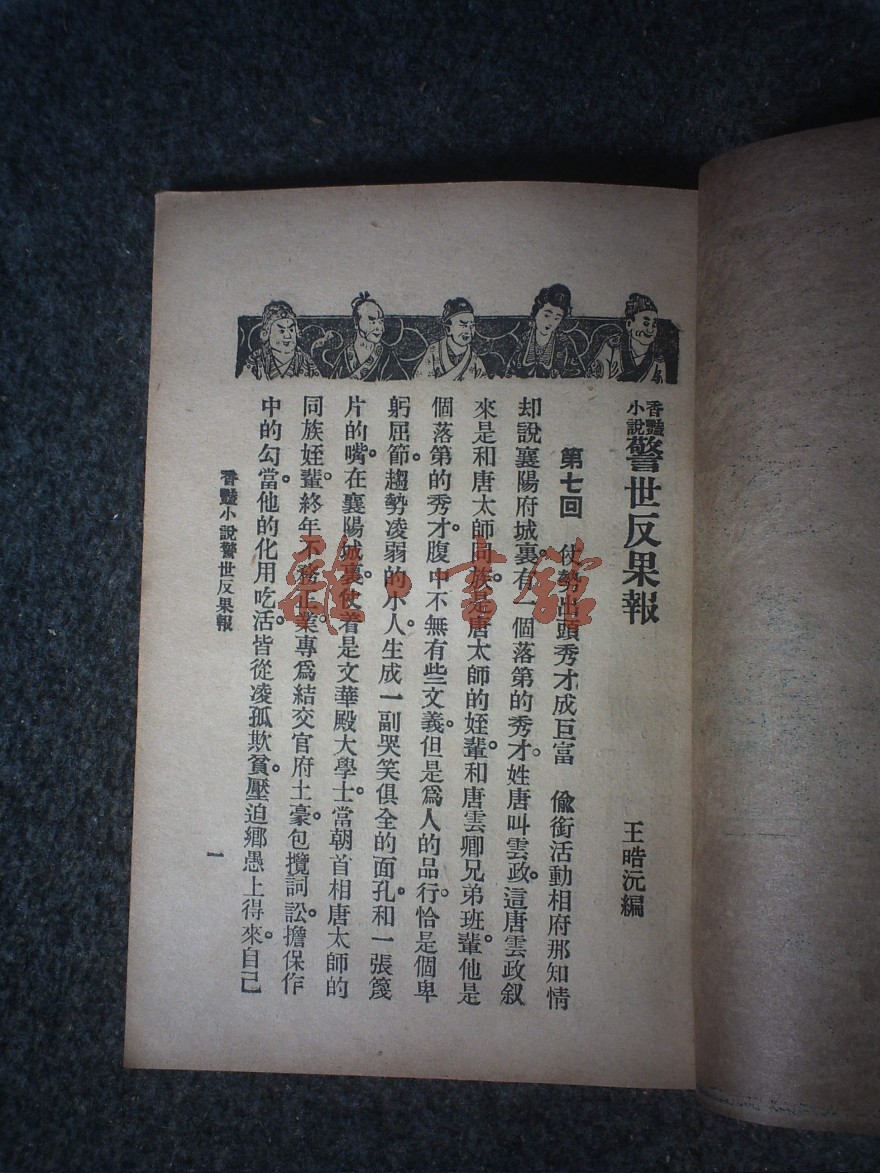 香艷小說 警世反果報
王晧沅編
第七回　仗勢出頭秀才成巨富　偸銜活動相府那知情
却說襄陽府城裏。有一個落第的秀才。姓唐叫雲政。這唐雲政叙
來是和唐太師同族。是唐太師的姪輩。和唐雲卿兄弟班輩。他是
個落第的秀才。腹中不無有些文義。但是爲人的品行。恰是個卑
躬屈節。趨勢凌弱的小人。生成一副哭笑俱全的面孔。和一張篾
片的嘴。在襄陽城裏。仗着是文華殿大學士。當朝首相唐太師的
同族姪輩。終年不務正業。專爲結交官府土豪。包攬詞訟。擔保作
中的勾當。他的化用吃活。皆從凌孤欺貧。壓迫鄉愚上得來。自己
香艷小說警世反果報
一
雜·書館